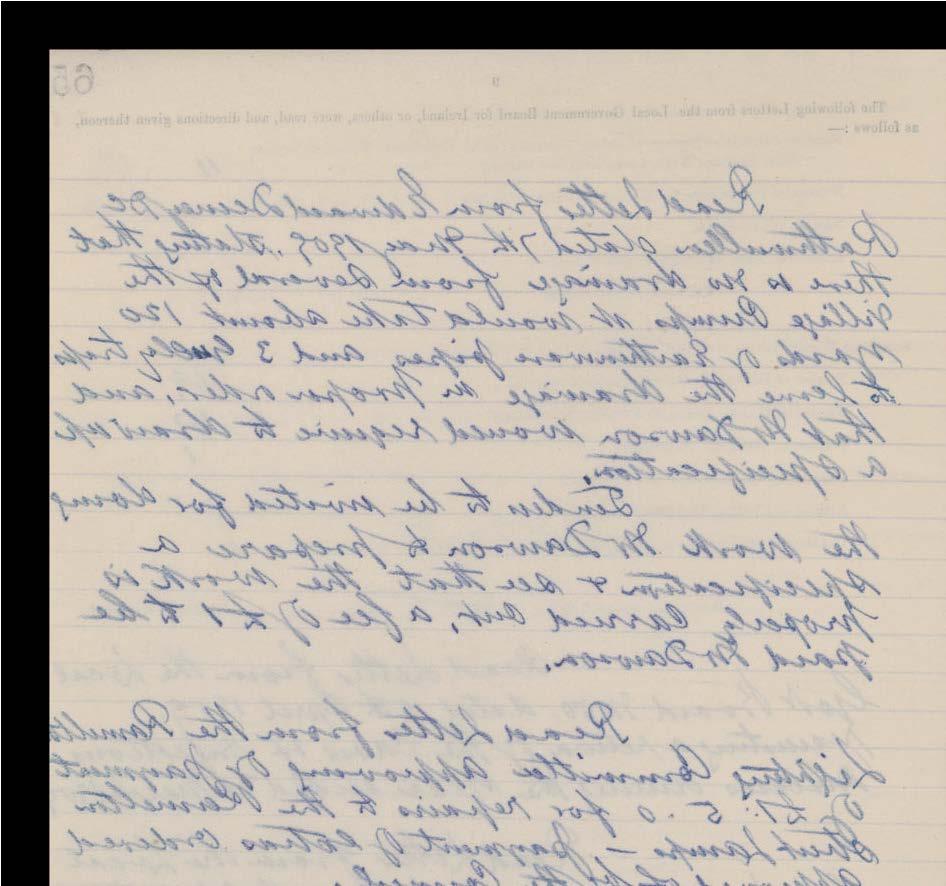 65
9
The following Letters from the Local Government Board for Ireland, or others, were read, and directions given thereon,
as follows :—
Read Letter from Edward Deeney PC
Rathmullen dated 7th May 1909, stating that
there is no drainage from several of the
Village Pumps it would take about 120
yards of Earthenware pipes and 3 Gully traps
to leave the drainage in proper order, and
that Mr Dawson would require to draw up
a specification.
Tenders to be invited for doing
the work Mr Dawson to prepare a
specification & see that the work is
properly carried out, a fee of £1 to be
paid Mr Dawson.
Read Letter from the Ramelton
Lighting Committee approving of payment
of £1. 5. 0 for repairs to the Ramelton
Street Lamps — payment of extras ordered